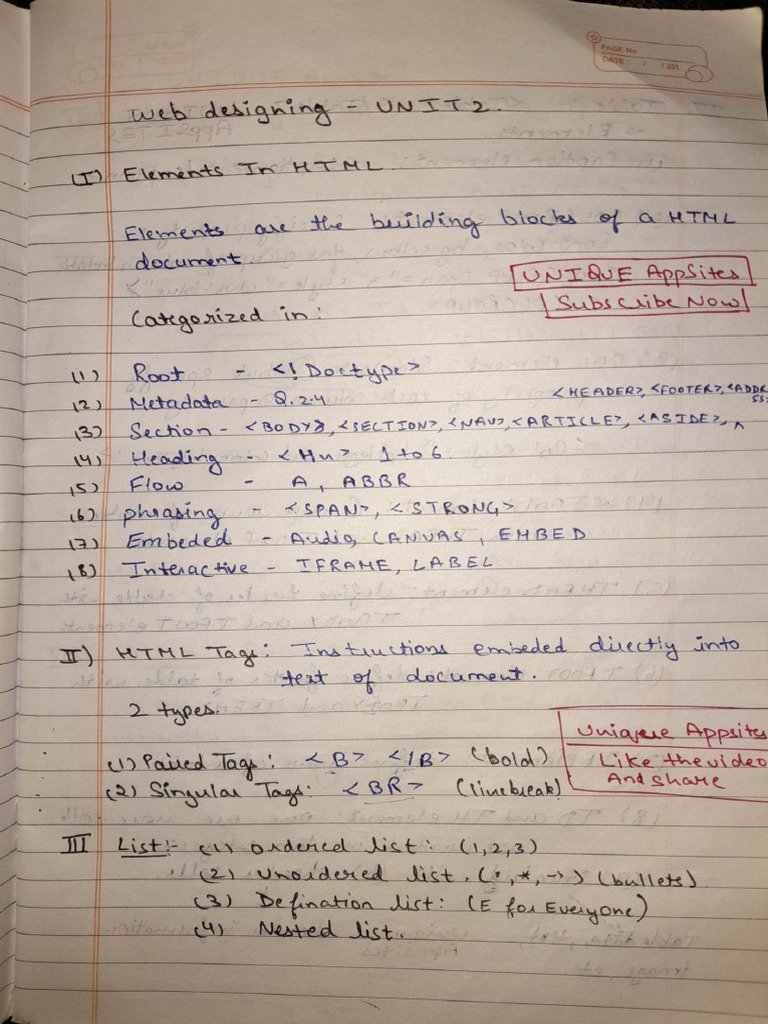 PAGE No
DATE: / /201
Web designing - UNIT 2.
(I) Elements In HTML
Elements are the building blocks of a HTML
document
UNIQUE AppSites
Subscribe Now
Categorized in:
(1) Root - <! Doctype>
(2) Metadata - Q.2.4
<HEADER>, <FOOTER>, <ADDRESS>
(3) Section - <BODY>, <SECTION>, <NAV>, <ARTICLE>, <ASIDE>,
(4) Heading - <Hn> 1 to 6
(5) Flow - A, ABBR
(6) phrasing - <SPAN>, <STRONG>
(7) Embeded - Audio, CANVAS, EMBED
(8) Interactive - IFRAME, LABEL
II) HTML Tags: Instructions embeded directly into
text of document.
2 types.
Unique Appsites
Like the video
And share
(1) Paired Tags: <B> </B> (bold)
(2) Singular Tags: <BR> (linebreak)
III List:- (1) ordered list: (1,2,3)
(2) unordered list. (•,*,→) (bullets)
(3) Defination list: (E for Everyone)
(4) Nested list.